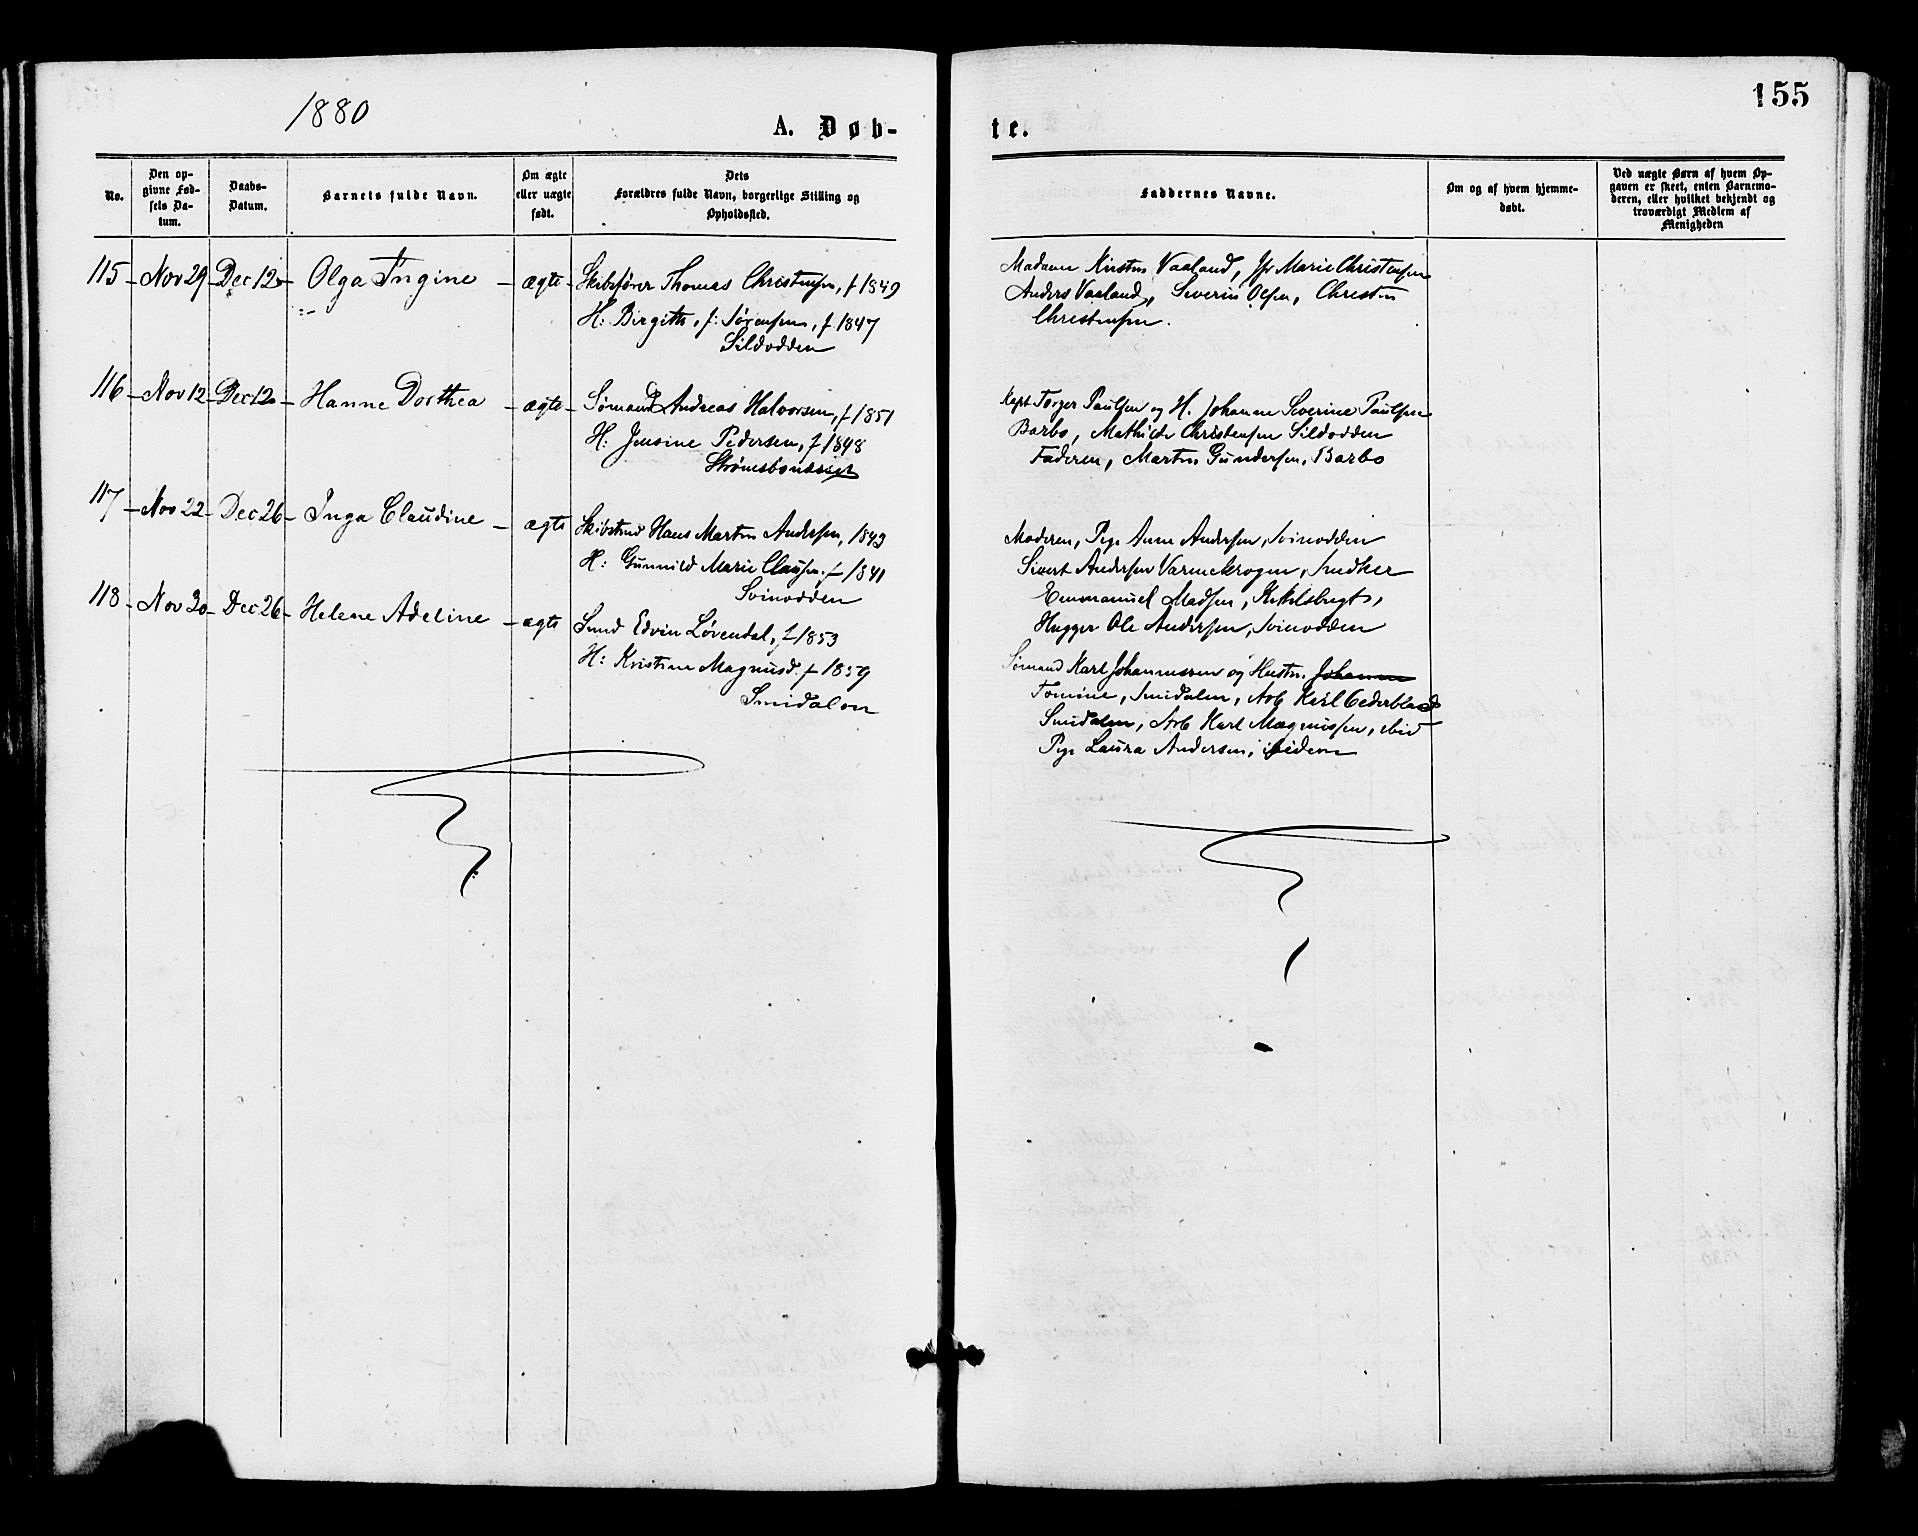 1880
155
A. Døb-
te.
No.
Den op-
givne Fød-
sels Da-
tum.
Daabs-
Datum.
Barnets fulde Navn.
Om ægte
eller uægte
født.
Dets
Forældres fulde Navn, borgerlige Stilling og
Opholdssted.
Faddernes Navne.
Om og af hvem hjemme-
døbt.
Ved uægte Børn af hvem Op-
gaven er skeet, enten Barnemo-
deren, eller hvilket bekjendt og
troværdigt Medlem af
Menigheden
115 - Nov 29 - Dec 12 - Olga Ingine - ægte - Skibsfører Thomas Christensen, f 1849
H: Birgitte, f: Sørensen, f 1847
Sildodden
Madame Kirstin Vaaland, Jfr Marie Christensen
Anders Vaaland, Severin Olsen, Christen
Christensen.
116 - Nov 12 - Dec 12 - Hanne Dorthea - ægte - Sømand Andreas Halvorsen, f 1851
H: Jensine Pedersen, f 1848
Strømsbonæsset
Kapt Torger Paulsen og H. Johanne Severine Paulsen
Barbo, Mathilde Christensen Sildodden
Faderen, Martin Gundersen, Barbo
117 - Nov 22 - Dec 26 - Inga Claudine - ægte Skibstmd Hans Martin Andersen, 1843
H: Gunnild Marie Clausen f 1841
Svinodden
Moderen, Pige Anne Andersen, Svinodden
Sivert Andersen Varmekrogen, Snedker
Emmanuel Madsen, Kittelsbugt,
Hugger Ole Andersen, Svinodden
118 - Nov 30 - Dec 26 - Helene Adeline - ægte Smed Edvin Løvendal, f 1853
H: Kristine Magnusd. f 1859
Smidalen
Sømand Karl Johannessen og Hustru Johanne
Tomine, Smidalen, Arb Karl Cederblad
Smidalen, Arb Karl Magnussen, ibid
Pige Laura Andersen, ibidem